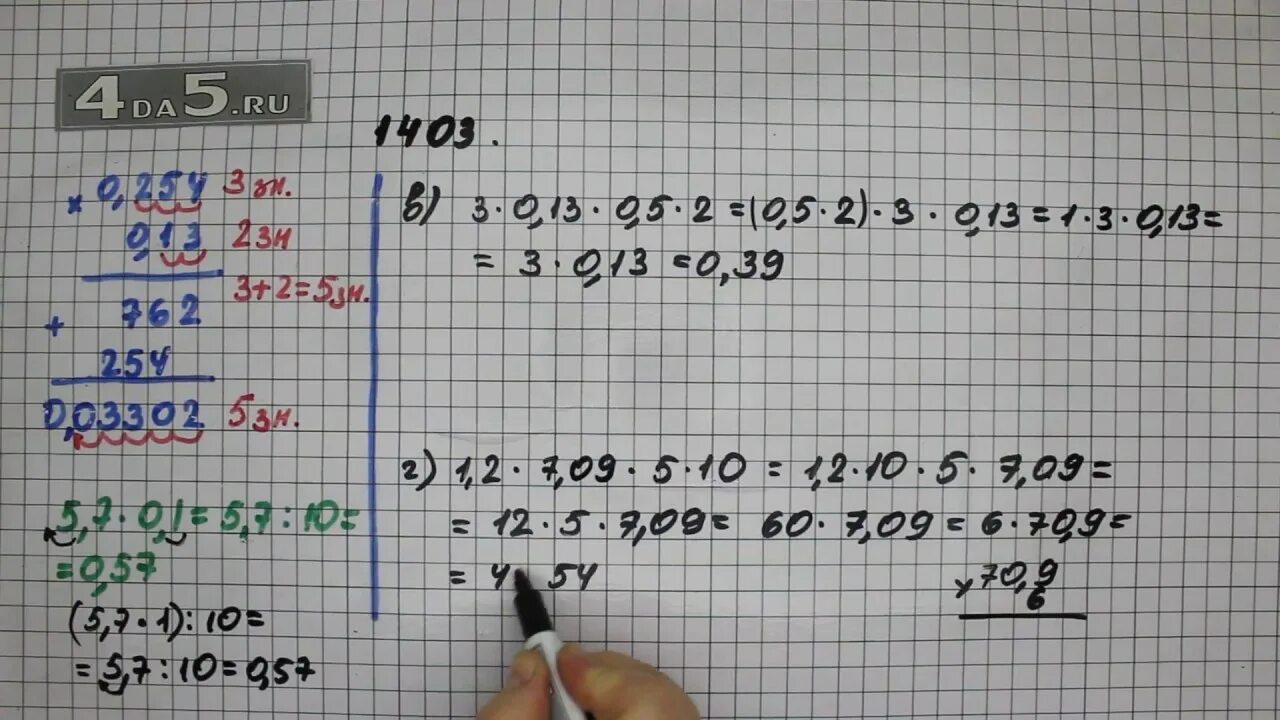 4DA5.RU
1403.
0,254 3 зн.
× 0,13 2 зн
3+2=5 зн.
+ 762
254
0,03302 5 зн.
5,7 · 0,1 = 5,7 : 10 =
= 0,57
(5,7 · 1) : 10 =
= 5,7 : 10 = 0,57
в) 3 · 0,13 · 0,5 · 2 = (0,5 · 2) · 3 · 0,13 = 1 · 3 · 0,13 =
= 3 · 0,13 = 0,39
г) 1,2 · 7,09 · 5 · 10 = 1,2 · 10 · 5 · 7,09 =
= 12 · 5 · 7,09 = 60 · 7,09 = 6 · 70,9 =
= 4 54
× 70,9
6